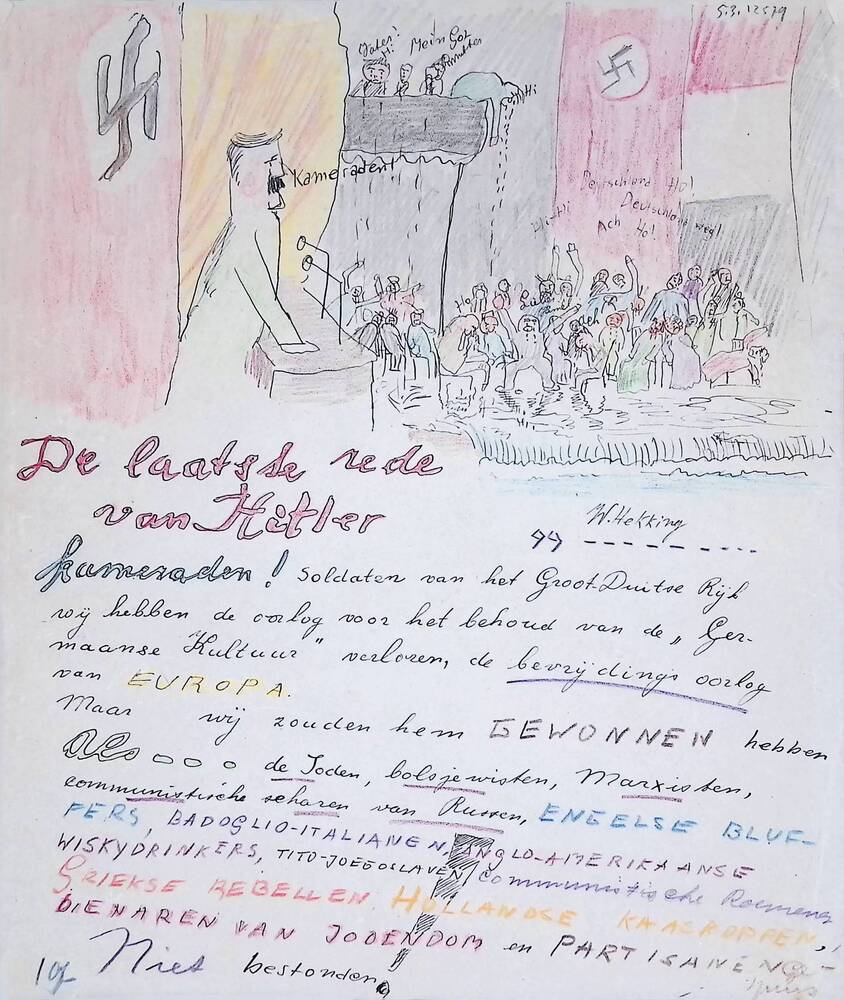 5.3.12579
Mein Got
Hi
Kameraden!
Deutschland Ho!
Deutschland weg!
Ach Ho!
Ho!
De laatste rede
van Hitler
W. Hekking
Kameraden! Soldaten van het Groot-Duitse Rijk
wij hebben de oorlog voor het behoud van de „Ger-
maanse Kultuur" verloren, de bevrijdings oorlog
van EUROPA.
Maar wij zouden hem GEWONNEN hebben
Als ooo o de Joden, bolsjewisten, Marxisten,
communistische scharen van Russen, ENGELSE BLUF-
FERS, BADOGLIO-ITALIANEN, ANGLO-AMERIKAANSE
WISKYDRINKERS, TITO-JOEGOSLAVEN, communistische Roemenen,
GRIEKSE REBELLEN, HOLLANDSE KAASKOPPEN,
DIENAREN VAN JODENDOM en PARTISANEN
Niet bestonden!